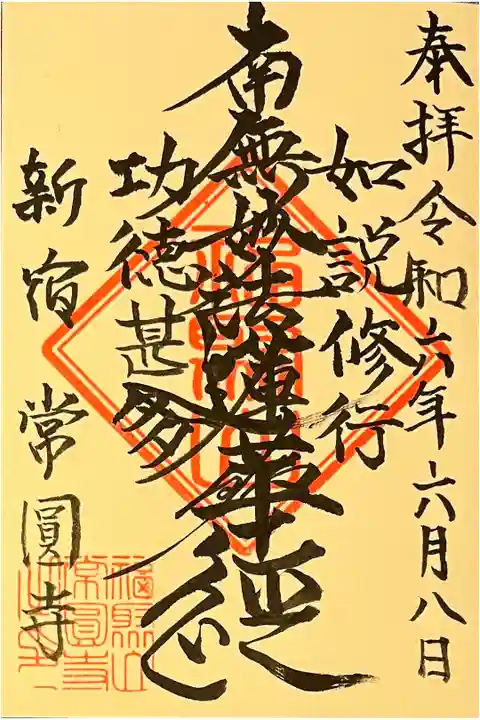 奉拝令和六年六月八日
如説修行
南無妙法蓮華経
功徳甚多
新宿 常圓寺
福聚山
常圓寺